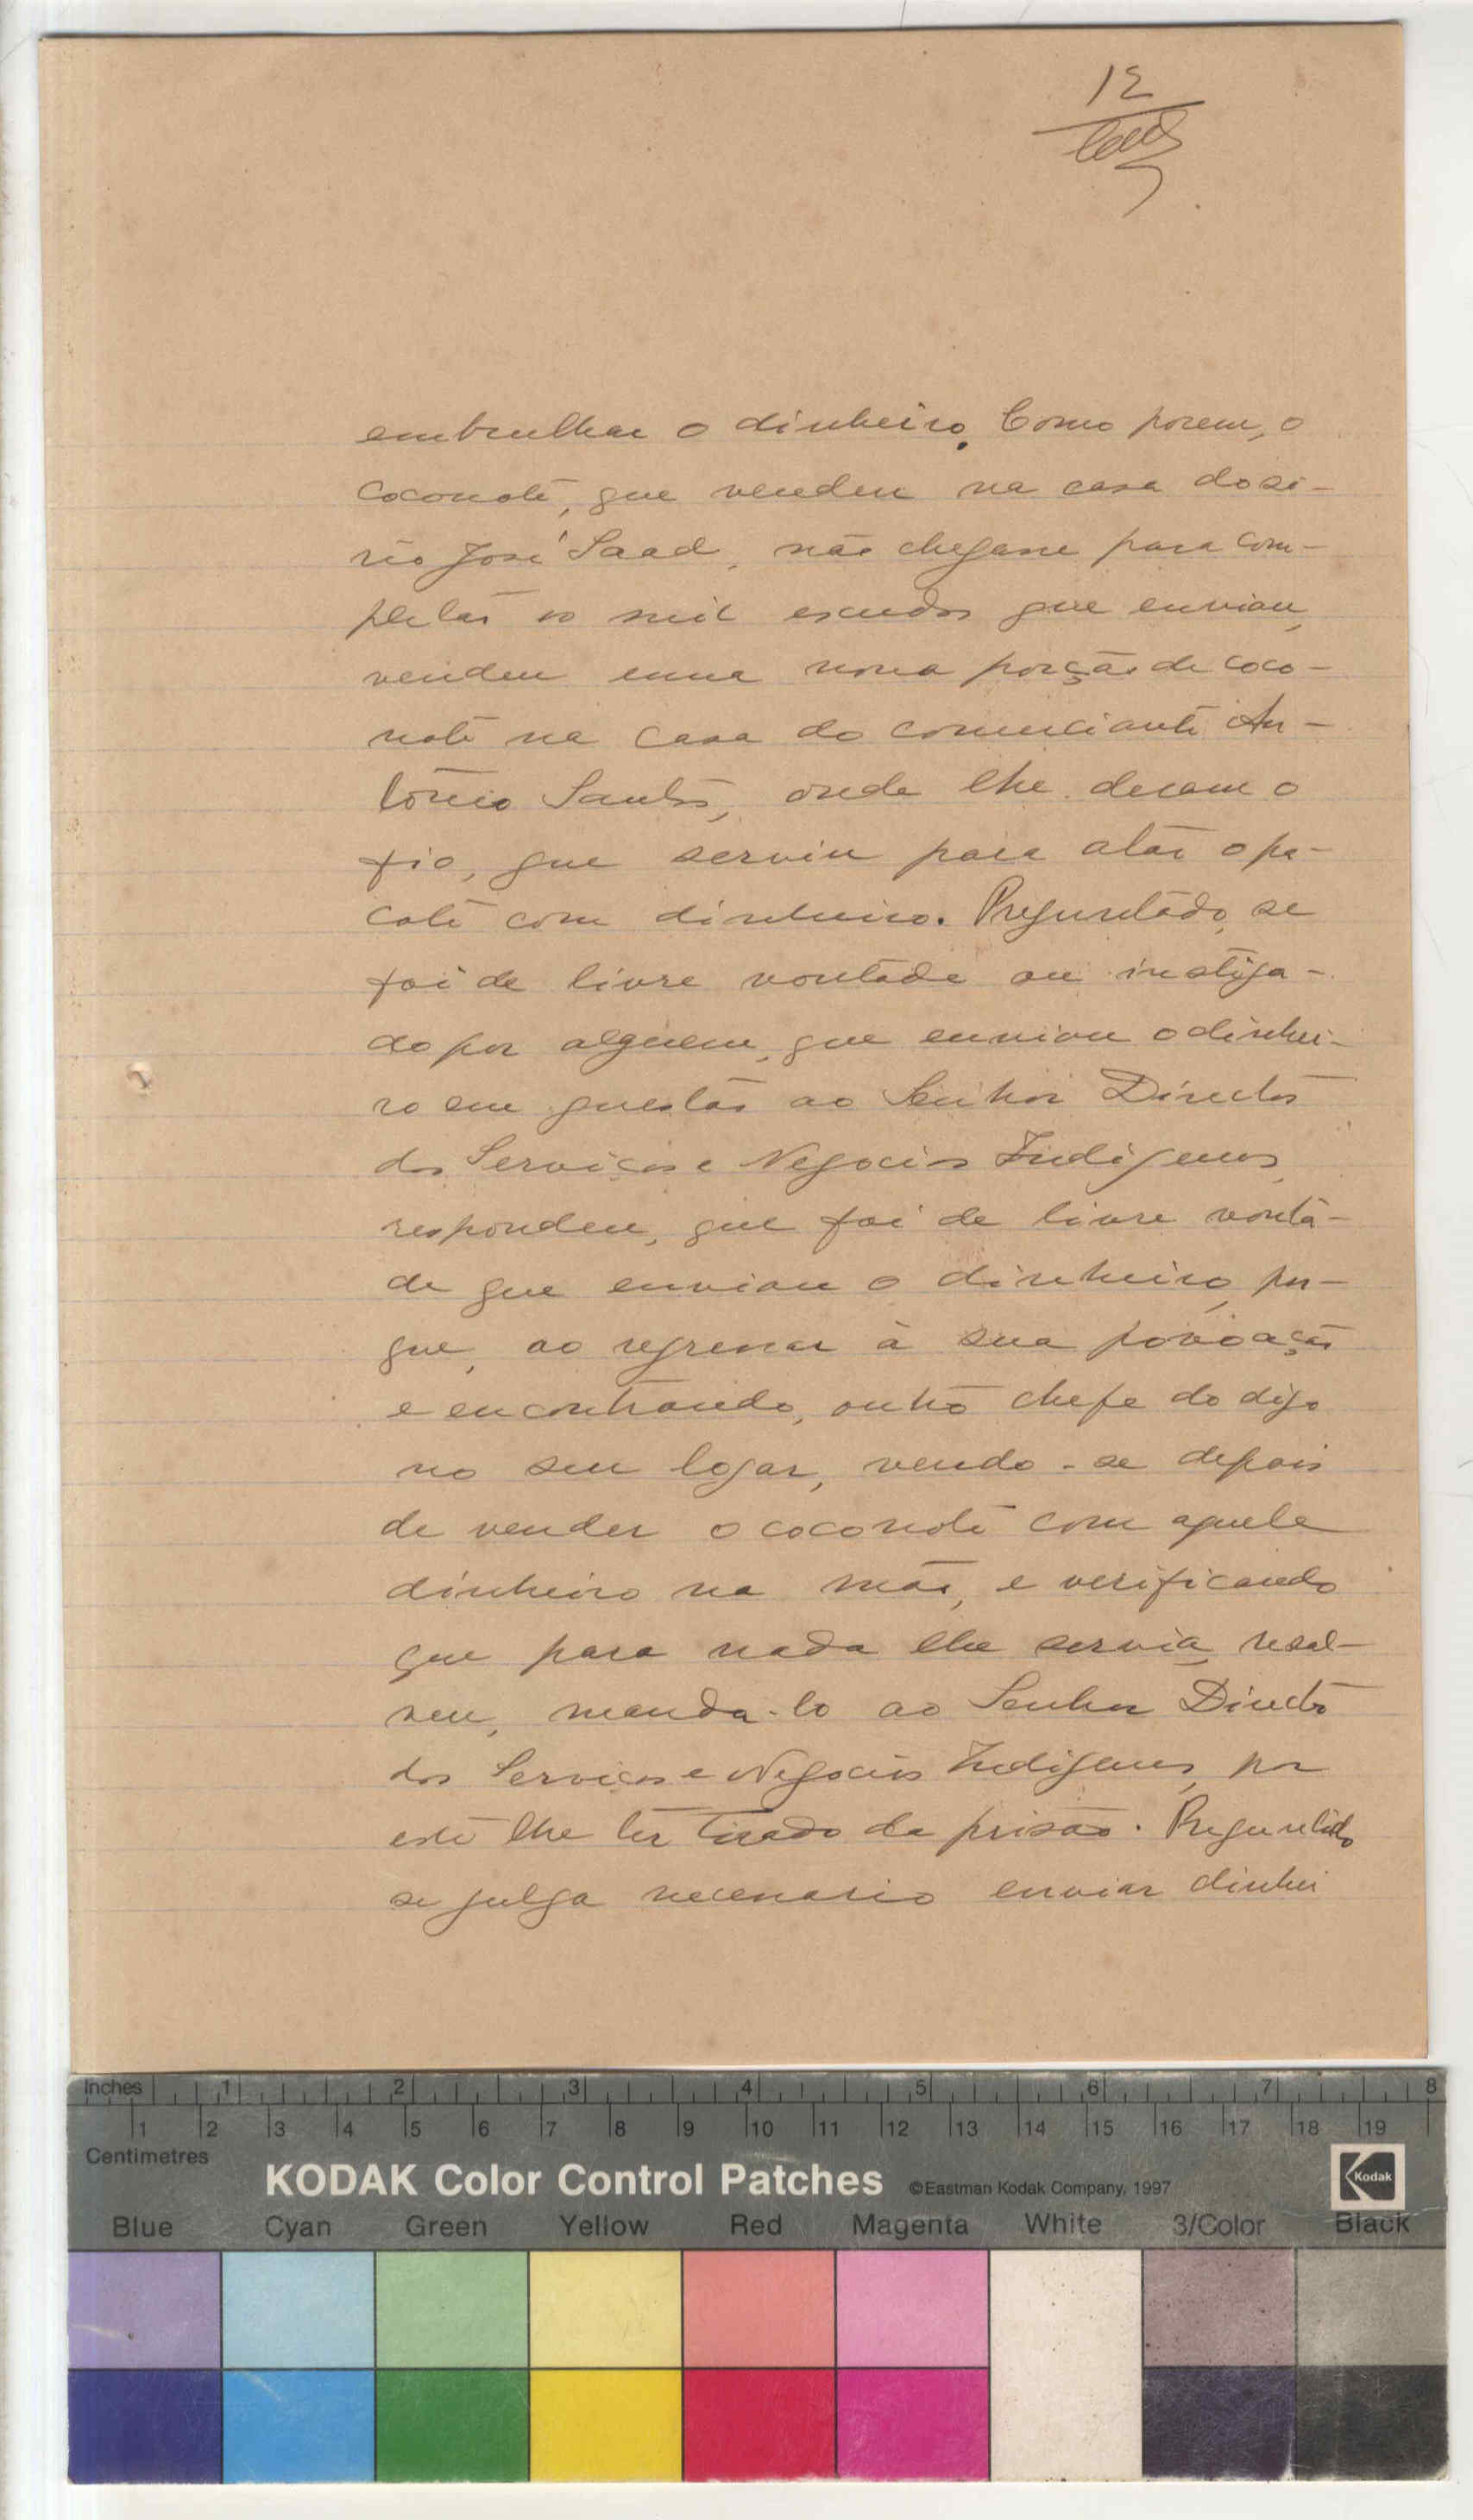 12
embrulhar o dinheiro. Como porem, o
coconote, que vendeu na casa do si-
rio José Saad, não chegasse para com-
pletar os mil escudos que enviou,
vendeu uma nova porção de coco-
note na casa do comerciante An-
tónio Santos, onde lhe deram o
fio, que serviu para atar o pa-
cote com dinheiro. Preguntado, se
foi de livre vontade ou instiga-
do por alguem, que enviou o dinhei-
ro em questão ao Senhor Director
dos Serviços e Negocios Indigenas,
respondeu, que foi de livre vonta-
de que enviou o dinheiro, por-
que, ao regressar à sua povoação
e encontrando, outro chefe do digo
no seu logar, vendo-se depois
de vender o coconote com aquele
dinheiro na mão, e verificando
que para nada lhe servia, resol-
veu, manda-lo ao Senhor Director
dos Serviços e Negocios Indigenas, por
este lhe ter tirado da prisão. Preguntado
se julga necessario enviar dinhei
Inches 1 2 3 4 5 6 7 8
1 2 3 4 5 6 7 8 9 10 11 12 13 14 15 16 17 18 19
Centimetres
KODAK Color Control Patches ©Eastman Kodak Company, 1997 Kodak
Blue Cyan Green Yellow Red Magenta White 3/Color Black